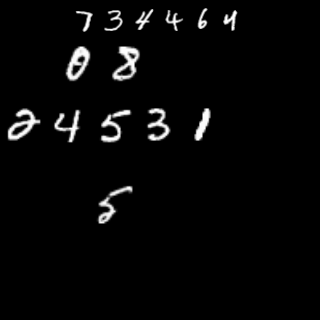 734464
08
24531
5